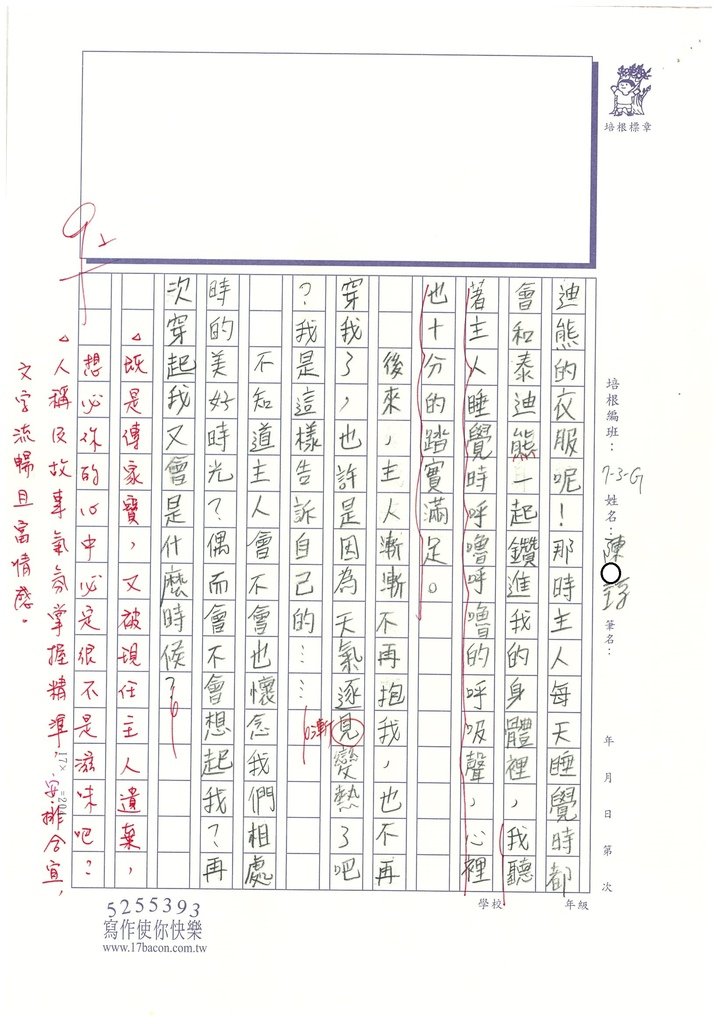 培根標章
培根編班：7-3-G 姓名：陳 筆名： 年 月 日 第 次
迪熊的衣服呢！那時主人每天睡覺時都
會和泰迪熊一起鑽進我的身體裡，我聽
著主人睡覺時呼嚕呼嚕的呼吸聲，心裡
也十分的踏實滿足。
後來，主人漸漸不再抱我，也不再
穿我了，也許是因為天氣逐見變熱了吧
？我是這樣告訴自己的……
漸
不知道主人會不會也懷念我們相處
時的美好時光？偶而會不會想起我？再
次穿起我又會是什麼時候？
△既是傳家寶，又被現任主人遺棄，
想必你的心中必定很不是滋味吧？
△人稱及故事氣氛掌握精準，安排合宜，
文字流暢且富情感。
17×
=20
學校 年級
5255393
寫作使你快樂
www.17bacon.com.tw